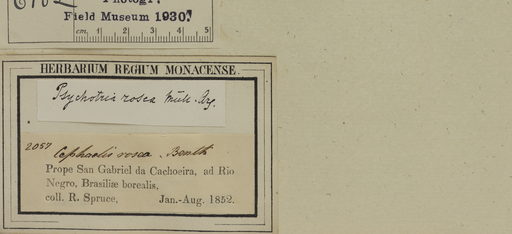 Field Museum 1930.
cm. 1 2 3 4 5
HERBARIUM REGIUM MONACENSE.
Psychotria rosea Müll. Arg.
2057
Cephaelis rosea. Benth
Prope San Gabriel da Cachoeira, ad Rio
Negro, Brasiliæ borealis,
coll. R. Spruce, Jan.-Aug. 1852.